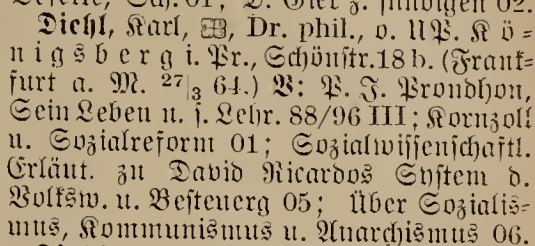 Diehl, Karl, Dr. phil., o. UP. Kö=
nigsberg i. Pr., Schönstr. 18 b. (Frank=
furt a. M. 27|3 64.) V: P. J. Proudhon,
Sein Leben u. s. Lehr. 88/96 III; Kornzoll
u. Sozialreform 01; Sozialwissenschaftl.
Erläut. zu David Ricardos System d.
Volksw. u. Besteuerg 05; Über Sozialis=
mus, Kommunismus u. Anarchismus 06.